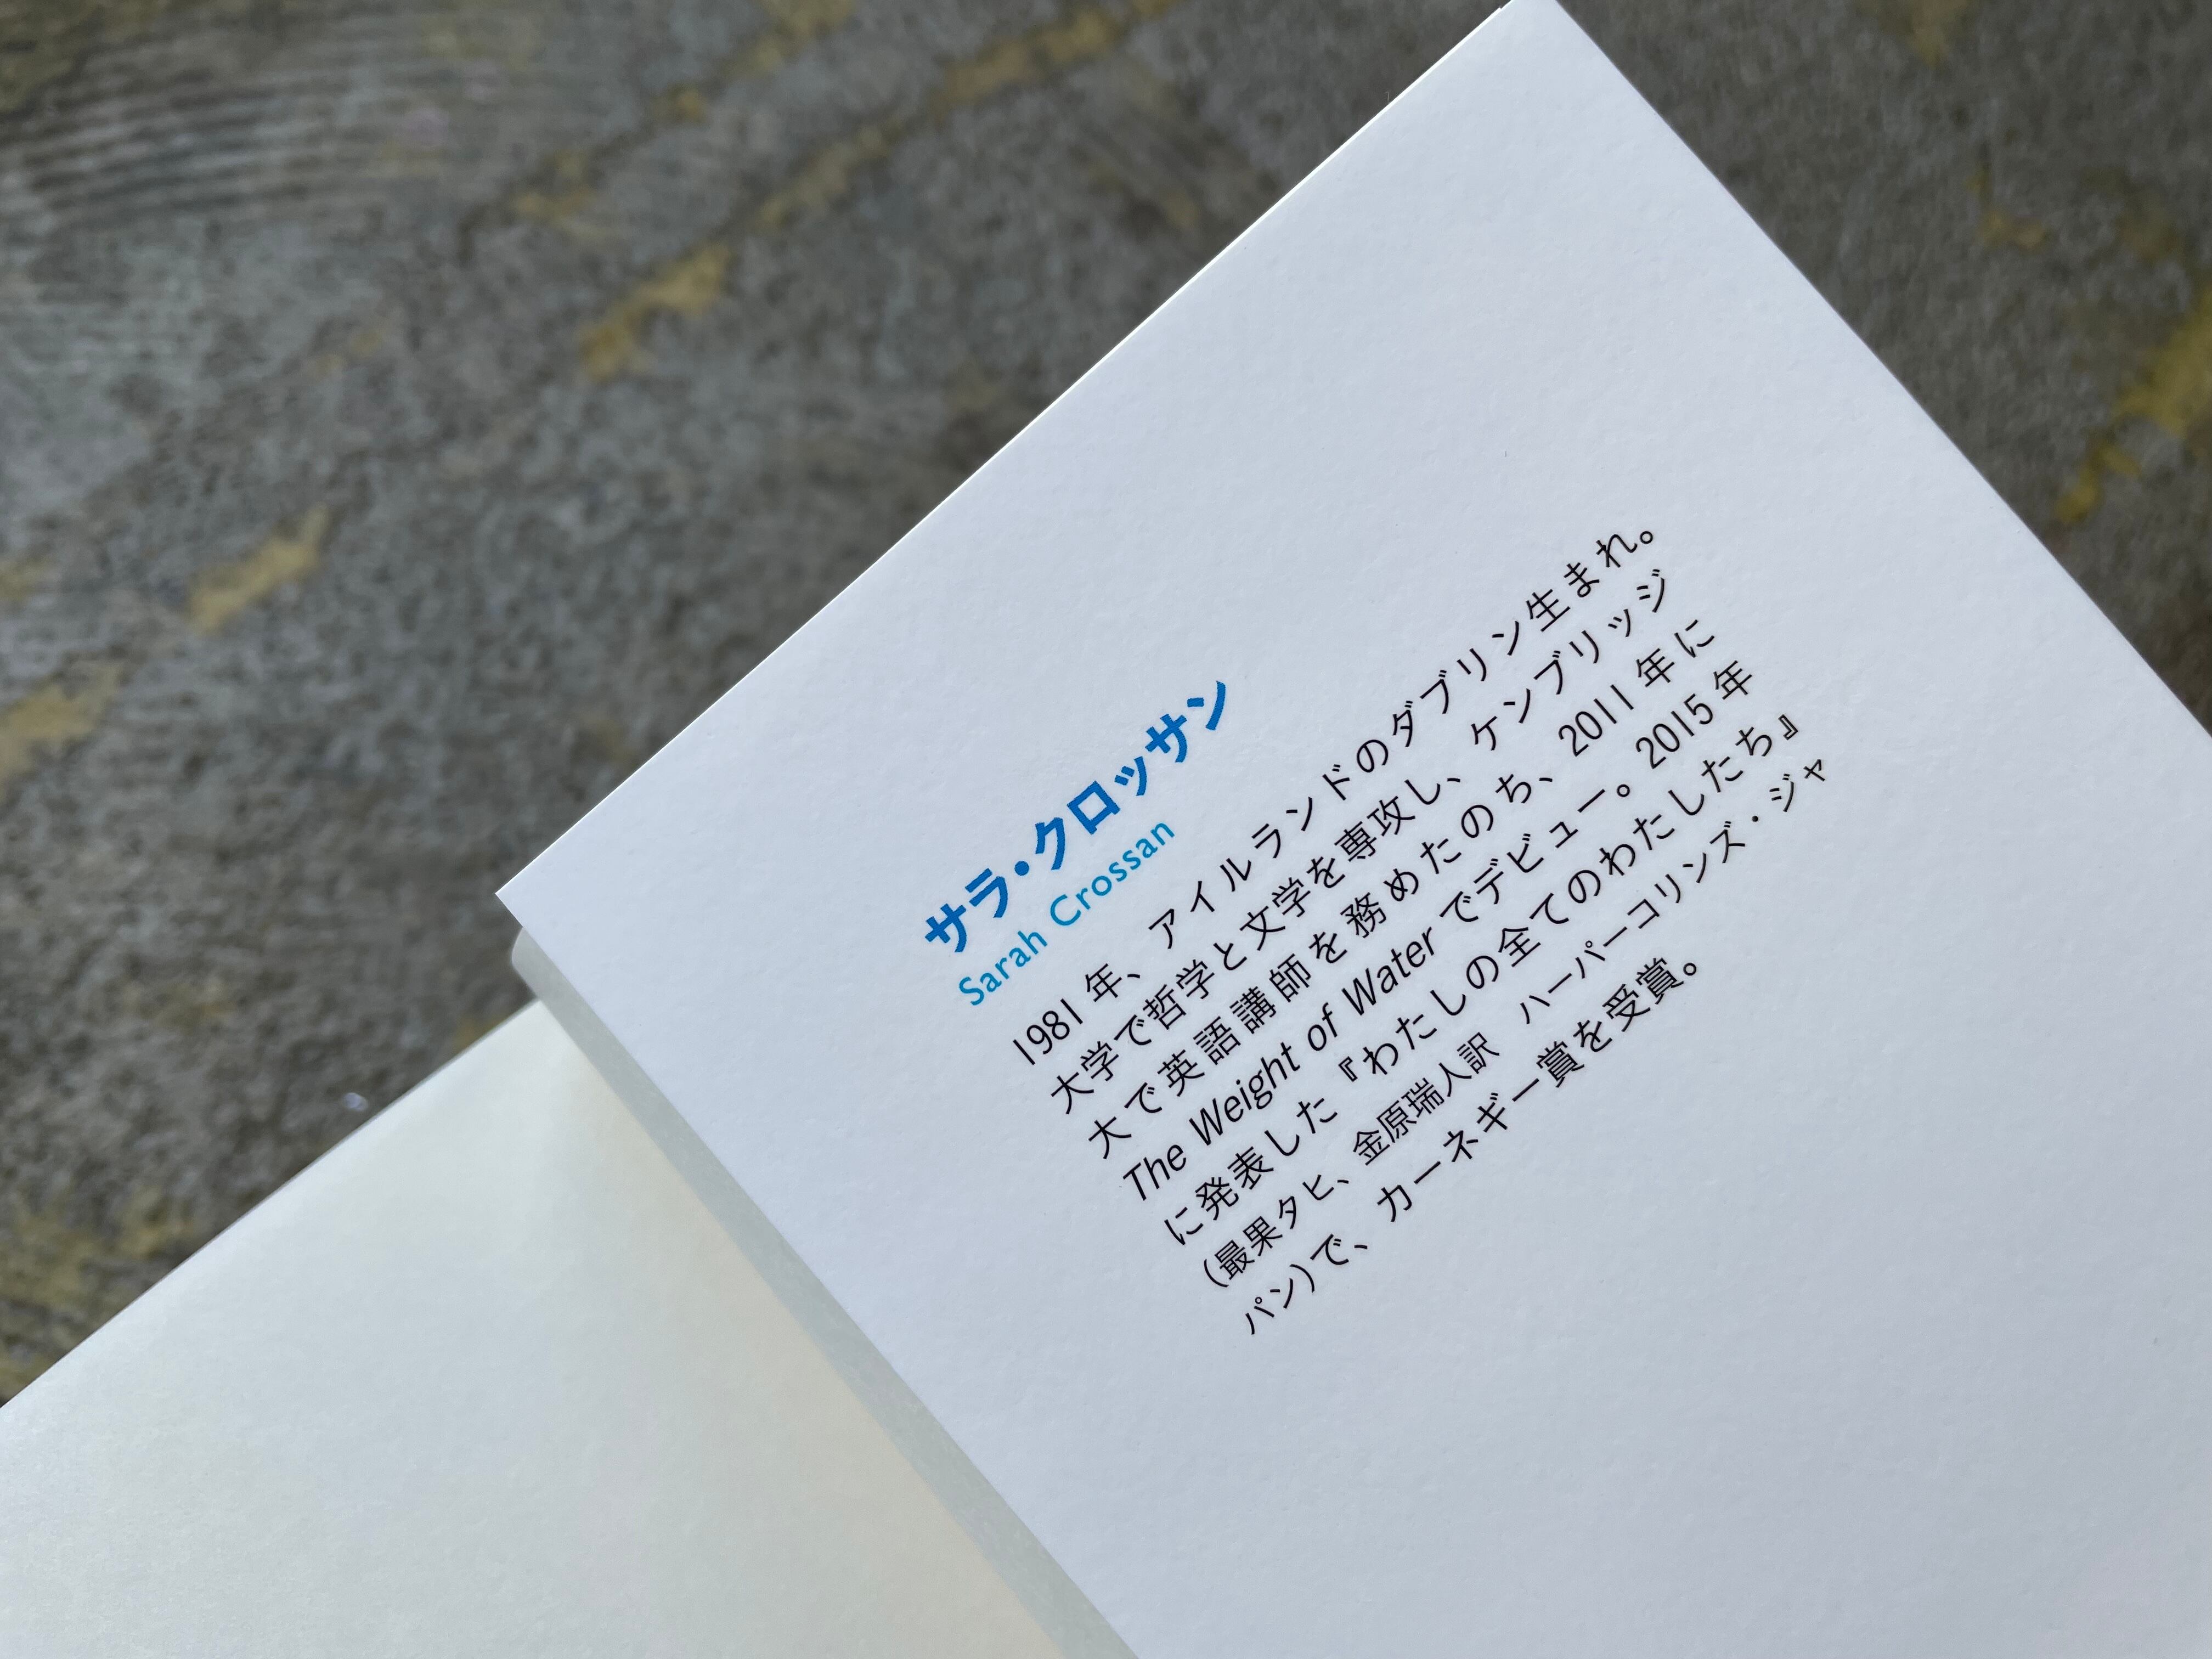 サラ・クロッサン
Sarah Crossan
1981年、アイルランドのダブリン生まれ。
大学で哲学と文学を専攻し、ケンブリッジ
大で英語講師を務めたのち、2011年に
The Weight of Water でデビュー。2015年
に発表した『わたしの全てのわたしたち』
(最果タヒ、金原瑞人訳　ハーパーコリンズ・ジャ
パン)で、カーネギー賞を受賞。